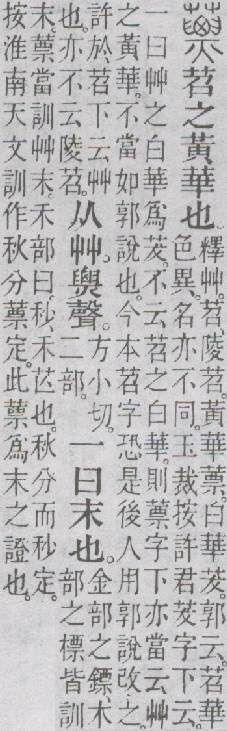 蔈苕之黃華也。釋艸。苕、陵苕。黃華蔈。白華茇。郭云。苕華
色異、名亦不同。玉裁按許君茇字下云。
一曰艸之白華爲茇。不云苕之白華。則蔈字下亦當云艸
之黃華。不當如郭說也。今本苕字恐是後人用郭說改之。
許於苕下云艸
也。亦不云陵苕。
从艸。㶾聲。方小切。
二部。
一曰末也。金部之鏢、木
部之標皆訓
末。蔈當訓艸末。禾部曰。秒、禾芒也。秋分而秒定。
按淮南天文訓作秋分蔈定。此蔈爲末之證也。